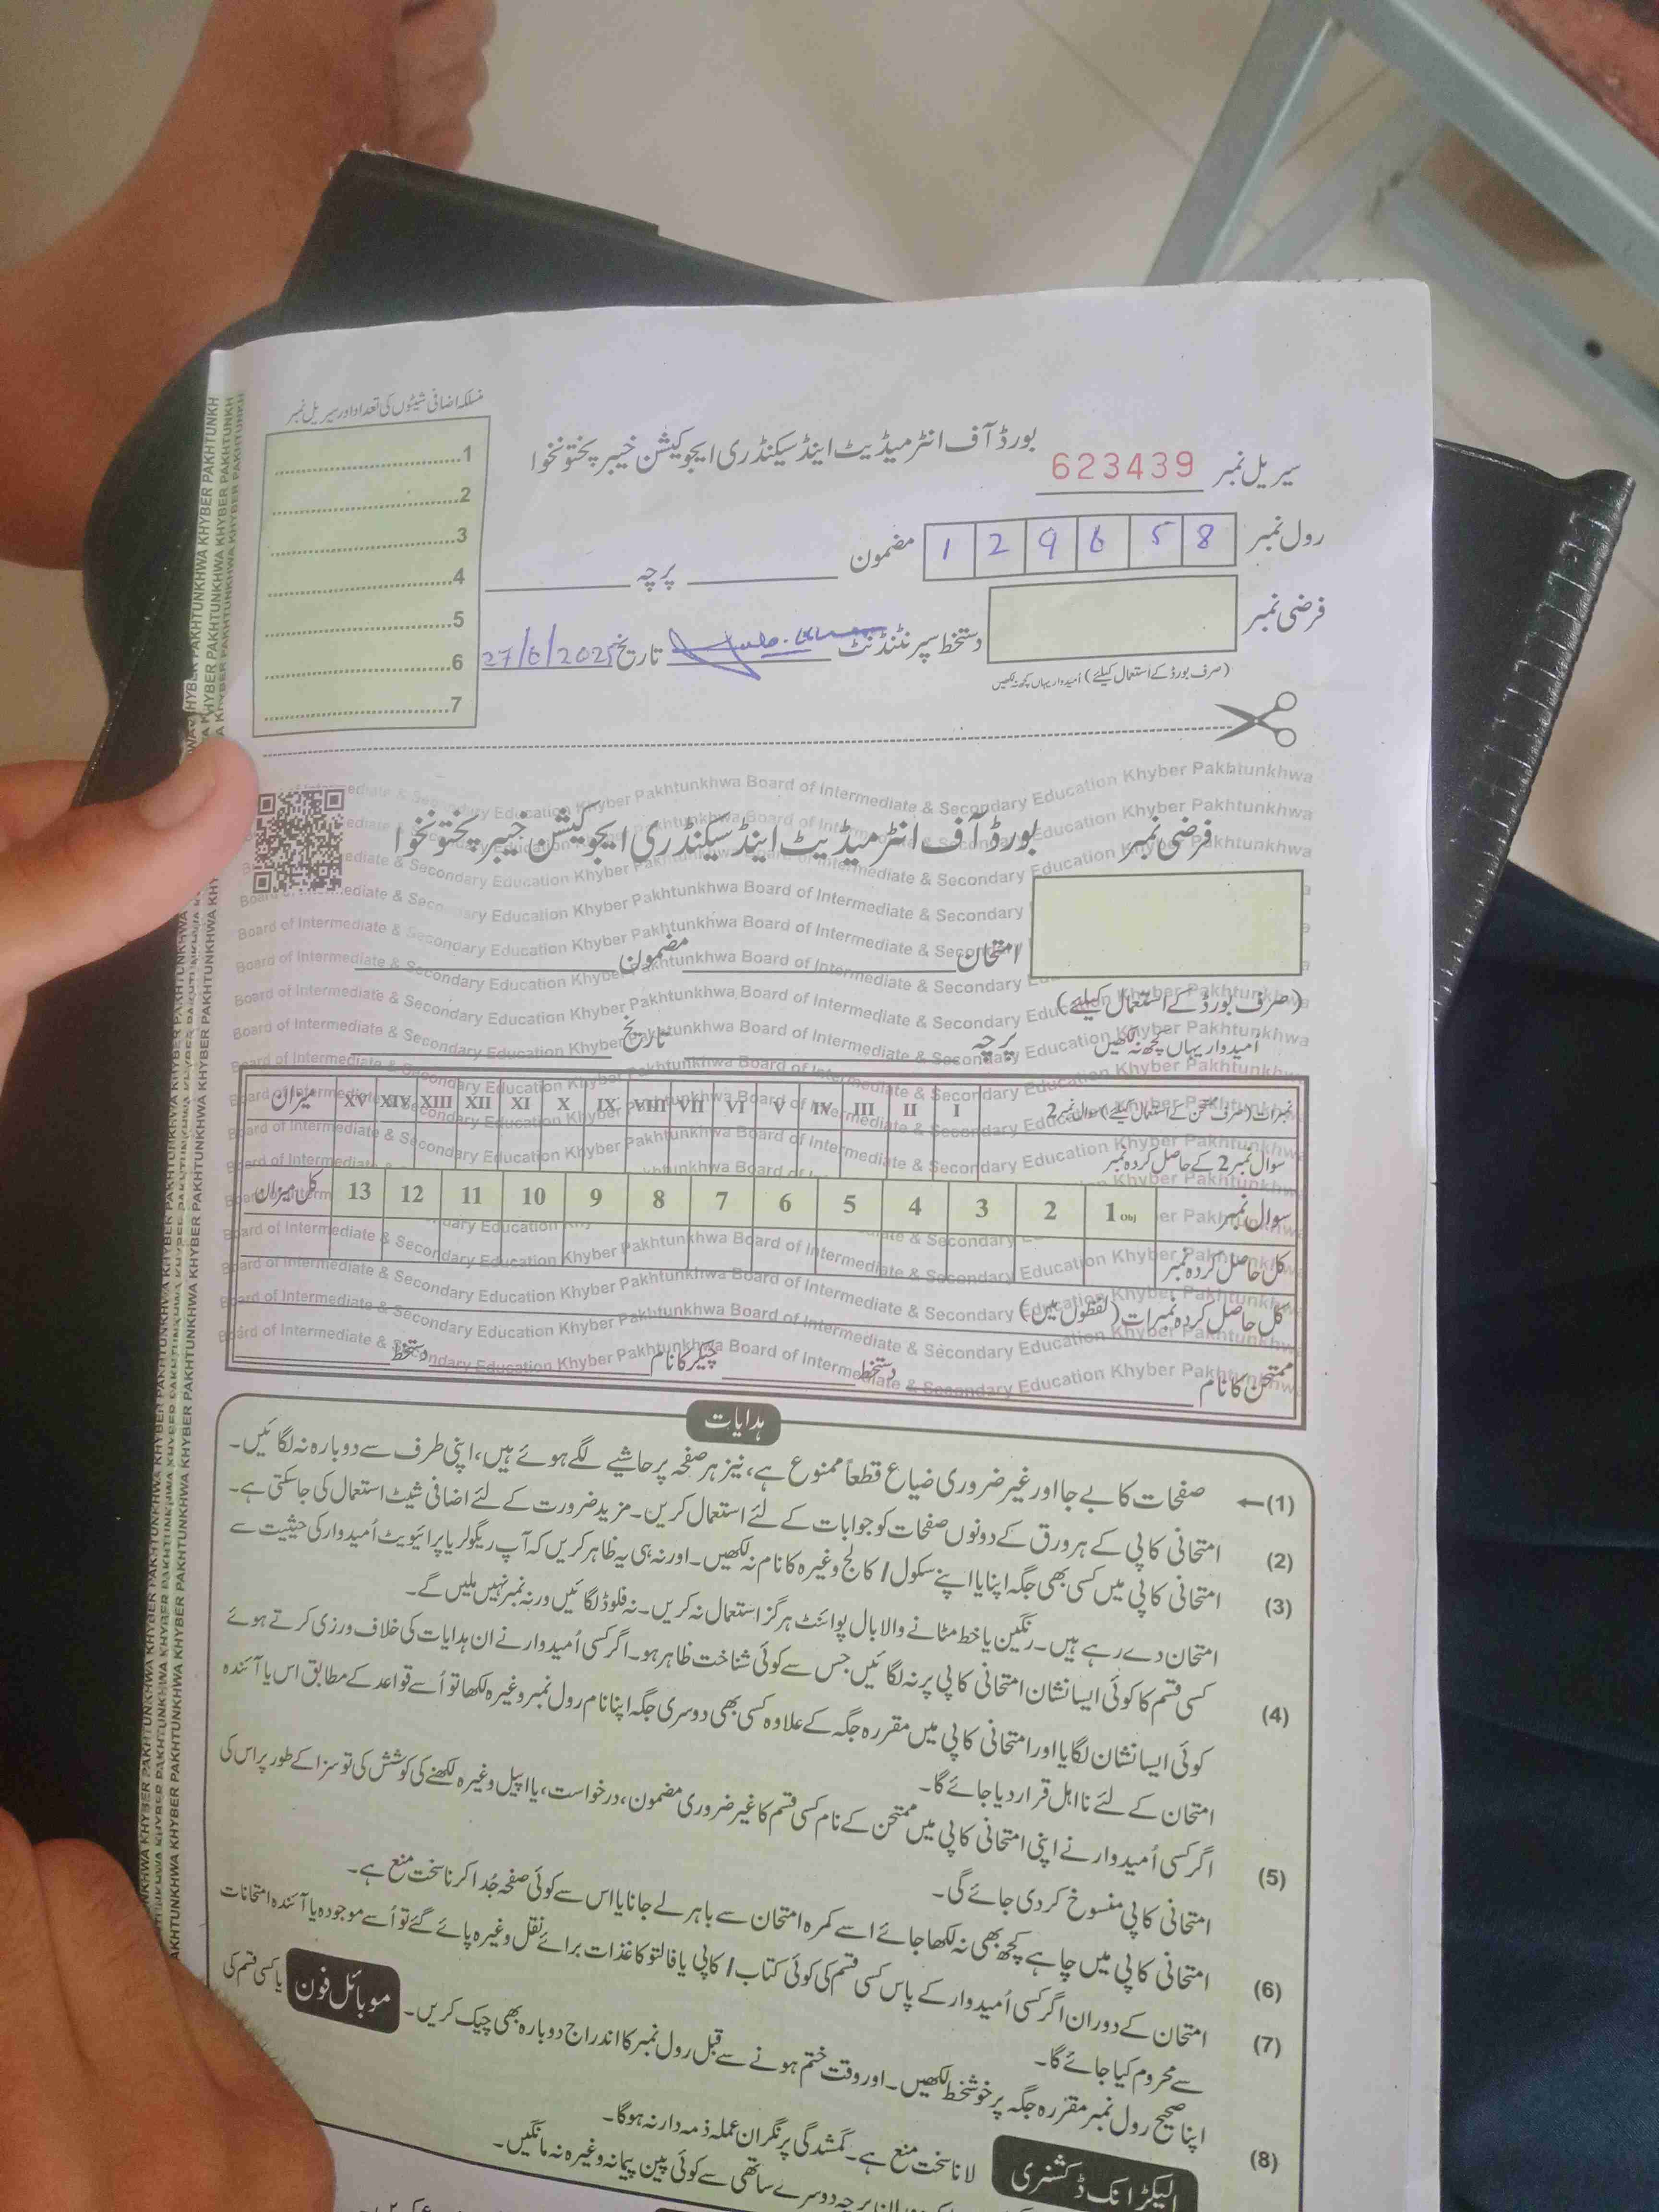 منسلکہ اضافی شیٹوں کی تعداد اور سیریل نمبر
1
2
3
4
5
6
7
بورڈ آف انٹرمیڈیٹ اینڈ سیکنڈری ایجوکیشن خیبر پختونخوا
سیریل نمبر 623439
رول نمبر 1 2 9 6 5 8 مضمون پرچہ
فرضی نمبر
دستخط سپرنٹنڈنٹ تاریخ 27/6/2025
(صرف بورڈ کے استعمال کیلئے) اُمیدوار یہاں کچھ نہ لکھیں
فرضی نمبر بورڈ آف انٹرمیڈیٹ اینڈ سیکنڈری ایجوکیشن خیبر پختونخوا
Board of Intermediate & Secondary Education Khyber Pakhtunkhwa
امتحان مضمون
(صرف بورڈ کے استعمال کیلئے)
امیدوار یہاں کچھ نہ لکھیں
پرچہ تاریخ
نمبرات (صرف ممتحن کے استعمال کیلئے) سوال نمبر 2 I II III IV V VI VII VIII IX X XI XII XIII XIV XV میزان
سوال نمبر 2 کے حاصل کردہ نمبر
سوال نمبر 1 Obj 2 3 4 5 6 7 8 9 10 11 12 13 کل میزان
کل حاصل کردہ نمبر
کل حاصل کردہ نمبرات (لفظوں میں)
ممتحن کا نام دستخط چیکر کا نام دستخط
ہدایات
(1) صفحات کا بے جا اور غیر ضروری ضیاع قطعاً ممنوع ہے، نیز ہر صفحہ پر حاشیے لگے ہوئے ہیں، اپنی طرف سے دوبارہ نہ لگائیں۔
(2) امتحانی کاپی کے ہر ورق کے دونوں صفحات کو جوابات کے لئے استعمال کریں۔ مزید ضرورت کے لئے اضافی شیٹ استعمال کی جاسکتی ہے۔
(3) امتحانی کاپی میں کسی بھی جگہ اپنا یا اپنے سکول / کالج وغیرہ کا نام نہ لکھیں۔ اور نہ ہی یہ ظاہر کریں کہ آپ ریگولر یا پرائیویٹ اُمیدوار کی حیثیت سے
امتحان دے رہے ہیں۔ رنگین یا خط مٹانے والا بال پوائنٹ ہرگز استعمال نہ کریں۔ نہ فلوڈ لگائیں ورنہ نمبر نہیں ملیں گے۔
(4) کسی قسم کا کوئی ایسا نشان امتحانی کاپی پر نہ لگائیں جس سے کوئی شناخت ظاہر ہو۔ اگر کسی اُمیدوار نے ان ہدایات کی خلاف ورزی کرتے ہوئے
کوئی ایسا نشان لگایا اور امتحانی کاپی میں مقررہ جگہ کے علاوہ کسی بھی دوسری جگہ اپنا نام رول نمبر وغیرہ لکھا تو اُسے قواعد کے مطابق اس یا آئندہ
امتحان کے لئے نااہل قرار دیا جائے گا۔
(5) اگر کسی اُمیدوار نے اپنی امتحانی کاپی میں ممتحن کے نام کسی قسم کا غیر ضروری مضمون، درخواست، یا اپیل وغیرہ لکھنے کی کوشش کی تو سزا کے طور پر اس کی
امتحانی کاپی منسوخ کر دی جائے گی۔
(6) امتحانی کاپی میں چاہے کچھ بھی نہ لکھا جائے اسے کمرہ امتحان سے باہر لے جانا یا اس سے کوئی صفحہ جُدا کرنا سخت منع ہے۔
(7) امتحان کے دوران اگر کسی اُمیدوار کے پاس کسی قسم کی کوئی کتاب / کاپی یا فالتو کاغذات برائے نقل وغیرہ پائے گئے تو اُسے موجودہ یا آئندہ امتحانات
سے محروم کیا جائے گا۔
(8) اپنا صحیح رول نمبر مقررہ جگہ پر خوشخط لکھیں۔ اور وقت ختم ہونے سے قبل رول نمبر کا اندراج دوبارہ بھی چیک کریں۔ موبائل فون یا کسی قسم کی
الیکٹرانک ڈکشنری لانا سخت منع ہے۔ گمشدگی پر نگران عملہ ذمہ دار نہ ہوگا۔
پرچہ دوسرے ساتھی سے کوئی پین پیمانہ وغیرہ نہ مانگیں۔